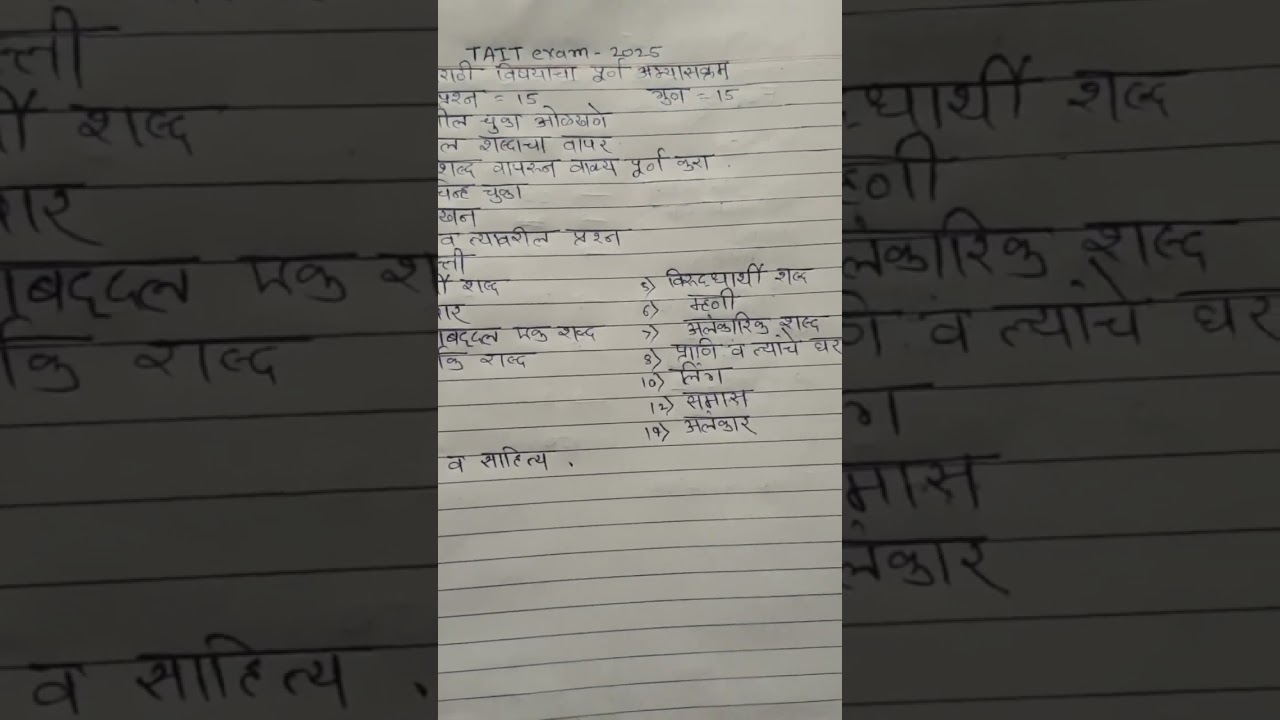 TAIT exam - 2025
राठी विषयाचा पूर्ण अभ्यासक्रम
प्रश्न = 15 गुण = 15
तील चुका ओळखणे
ल शब्दाचा वापर
शब्द वापरुन वाक्य पूर्ण करा .
चिन्ह चुका
खन
व त्यावरील प्रश्न
ती
र्थी शब्द 5) विरुद्धार्थी शब्द
ार 6) म्हणी
बद्दल एक शब्द 7) अलंकारिक शब्द
कि शब्द 8) प्राणि व त्यांचे घर
10) लिंग
12) समास
14) अलंकार
व साहित्य .